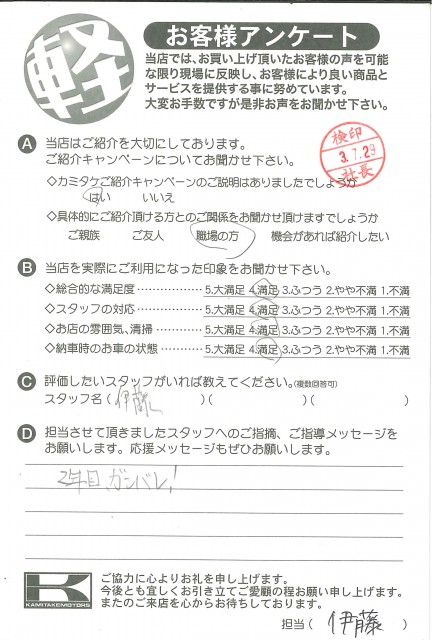 軽
お客様アンケート
当店では、お買い上げ頂いたお客様の声を可能
な限り現場に反映し、お客様により良い商品と
サービスを提供する事に努めています。
大変お手数ですが是非お声をお聞かせ下さい。
A 当店はご紹介を大切にしております。
ご紹介キャンペーンについてお聞かせ下さい。
検印
3.7.29
社長
◇カミタケご紹介キャンペーンのご説明はありましたでしょうか
はい いいえ
◇具体的にご紹介頂ける方とのご関係をお聞かせ頂けますでしょうか
ご親族 ご友人 職場の方 機会があれば紹介したい
B 当店を実際にご利用になった印象をお聞かせ下さい。
◇総合的な満足度 …………… 5.大満足 4.満足 3.ふつう 2.やや不満 1.不満
◇スタッフの対応 …………… 5.大満足 4.満足 3.ふつう 2.やや不満 1.不満
◇お店の雰囲気、清掃 ………… 5.大満足 4.満足 3.ふつう 2.やや不満 1.不満
◇納車時のお車の状態 ………… 5.大満足 4.満足 3.ふつう 2.やや不満 1.不満
C 評価したいスタッフがいれば教えてください。(複数回答可)
スタッフ名 ( 伊藤 )( )( )
D 担当させて頂きましたスタッフへのご指摘、ご指導メッセージを
お願いします。応援メッセージもぜひお願いします。
2年目、ガンバレ!
K
KAMITAKEMOTORS
ご協力に心よりお礼を申し上げます。
今後とも宜しくお引き立てご愛顧の程お願い申し上げます。
またのご来店を心からお待ちしております。
担当 ( 伊藤 )